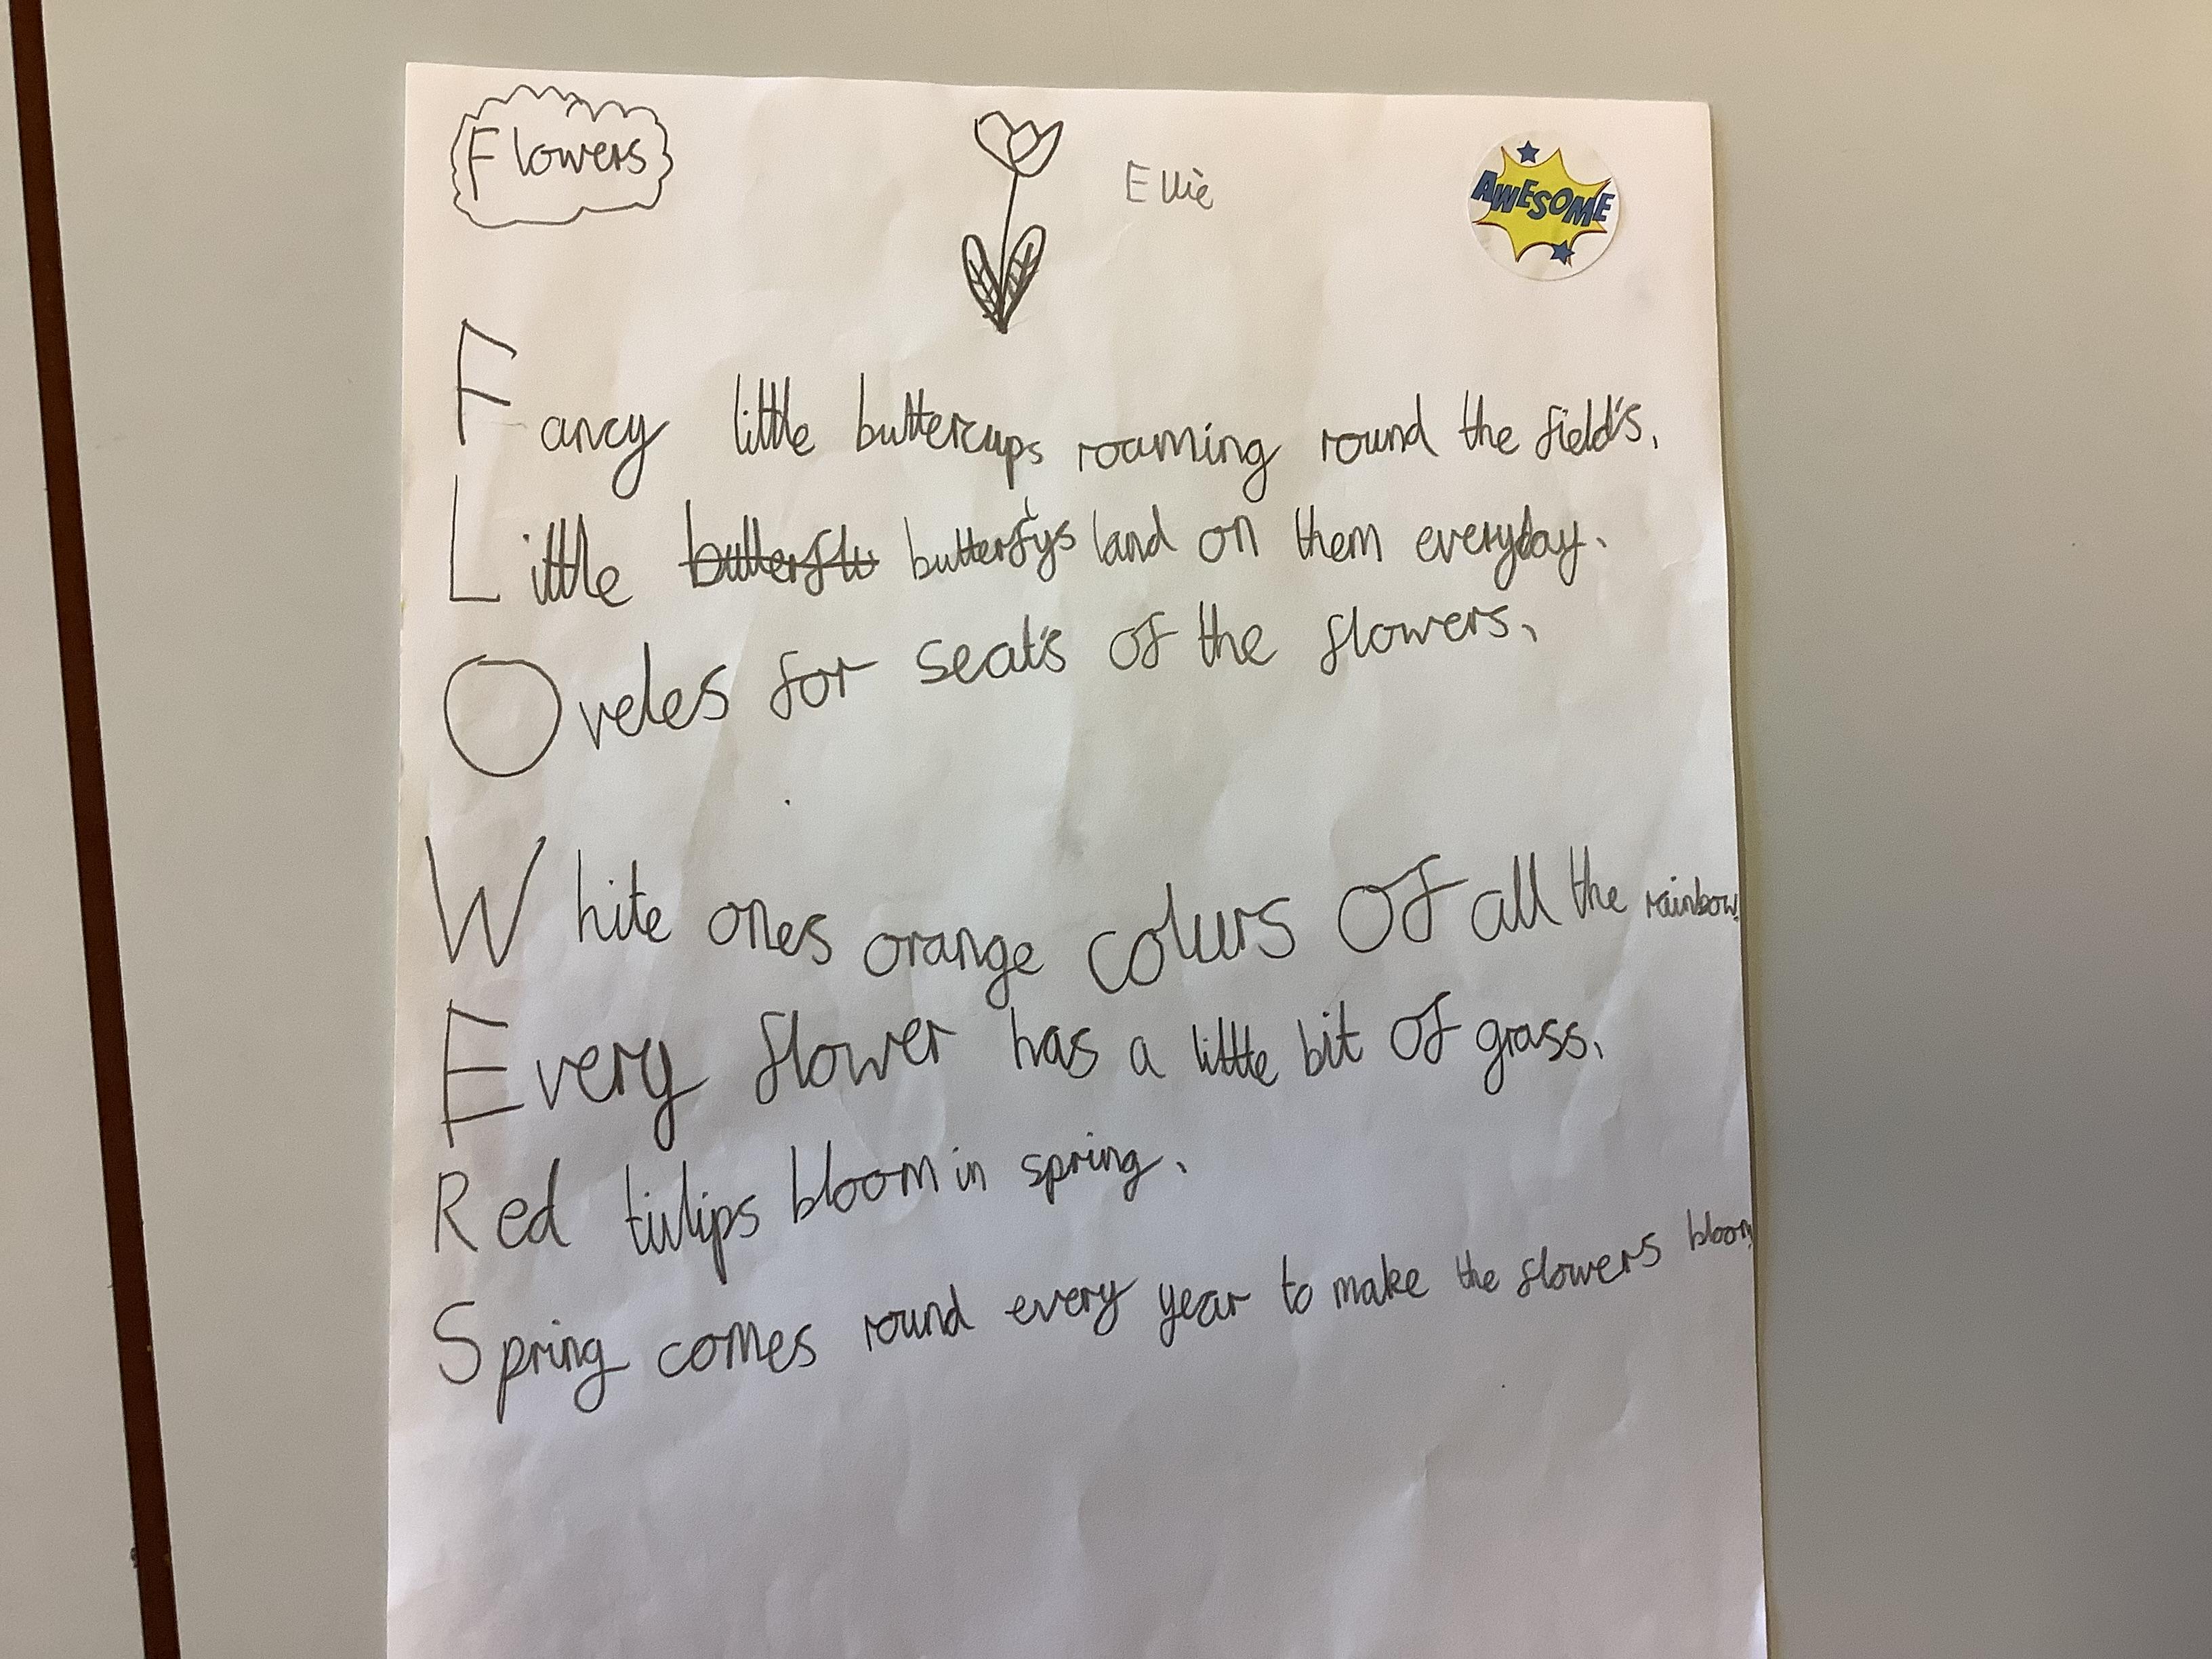 Flowers
Ellie
AWESOME
Fancy little buttercups roaming round the field's.
Little butterflu butterflys land on them everyday.
Oveles for seat's of the flowers.
White ones orange colurs of all the rainbow.
Every flower has a little bit of grass.
Red tulips bloom in spring.
Spring comes round every year to make the flowers bloom.